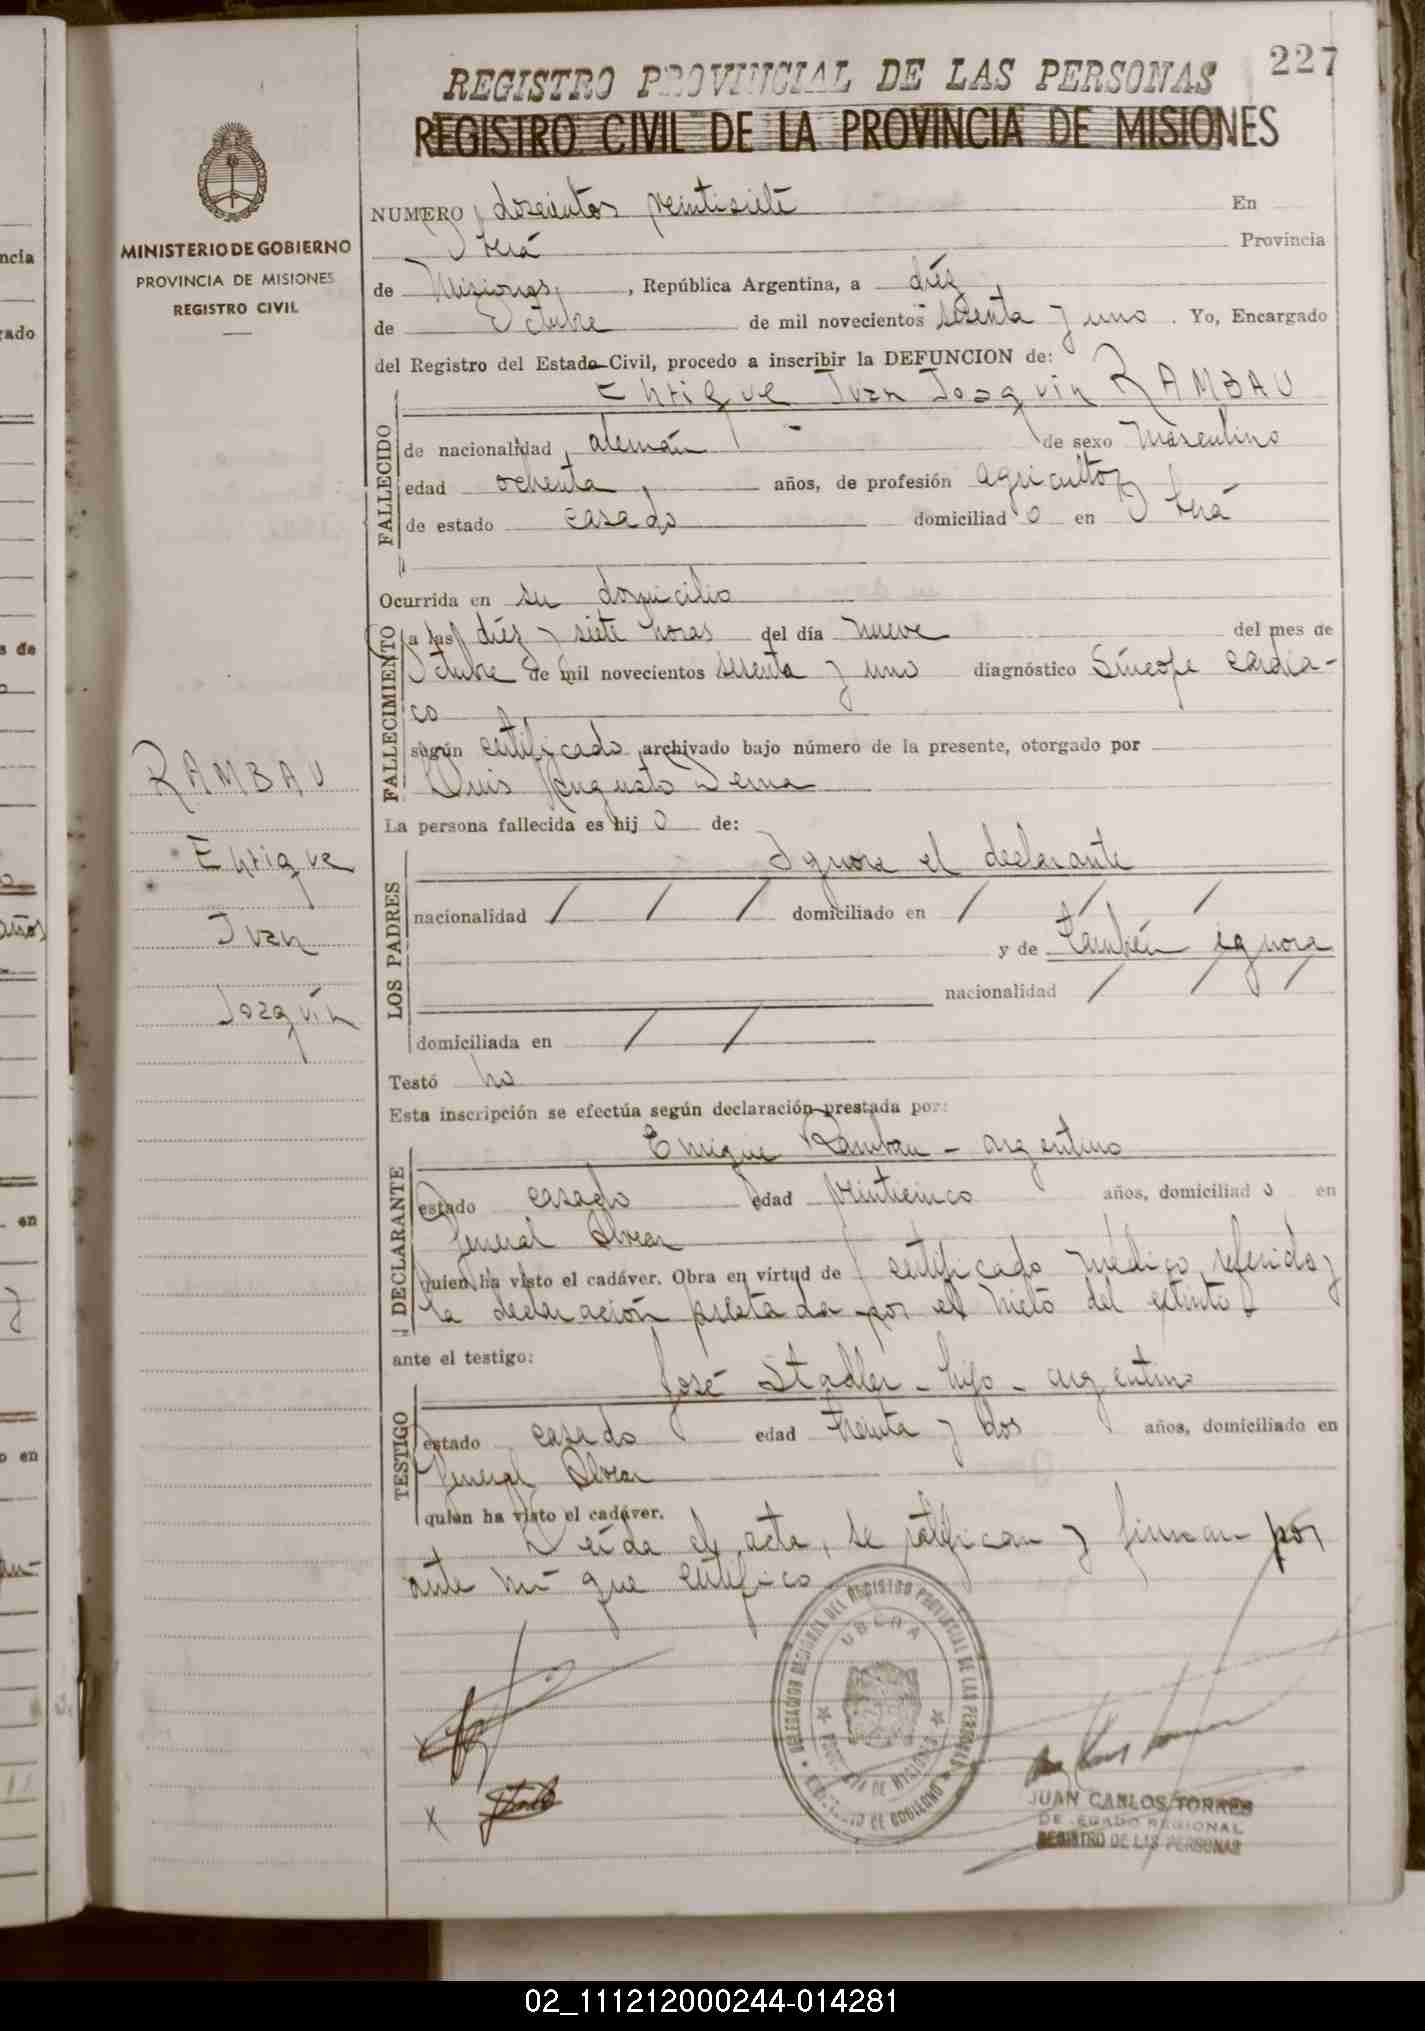 227
REGISTRO PROVINCIAL DE LAS PERSONAS
REGISTRO CIVIL DE LA PROVINCIA DE MISIONES
MINISTERIO DE GOBIERNO
PROVINCIA DE MISIONES
REGISTRO CIVIL
NUMERO doscientos veintisiete En
Oberá Provincia
de Misiones, República Argentina, a diéz
de Octubre de mil novecientos sesenta y uno. Yo, Encargado
del Registro del Estado Civil, procedo a inscribir la DEFUNCION de:
Enrique Juan Joaquin RAMBAU
FALLECIDO
de nacionalidad alemán - de sexo Masculino
edad ochenta, años, de profesión agricultor
de estado casado domiciliado en Oberá
Ocurrida en su domicilio
FALLECIMIENTO
a las diéz y siete horas del día nueve del mes de
Octubre de mil novecientos sesenta y uno diagnóstico Síncope cardía-
co
según certificado archivado bajo número de la presente, otorgado por
Luis Augusto Derna
La persona fallecida es hijo de:
LOS PADRES
Ignora el declarante
nacionalidad / / / domiciliado en / / /
y de También ignora
nacionalidad / / /
domiciliada en / /
Testó no
Esta inscripción se efectúa según declaración prestada por:
DECLARANTE
Enrique Rambau - argentino
estado casado edad veinticinco años, domiciliado en
General Alvear
quien ha visto el cadáver. Obra en virtud de certificado médico referido y
la declaración prestada por el nieto del extinto
ante el testigo:
TESTIGO
José Stadler - hijo - argentino
estado casado edad treinta y dos años, domiciliado en
General Alvear
quien ha visto el cadáver.
Leída el acta, se ratifican y firman por
ante mí que certifico
RAMBAU
Enrique
Juan
Joaquín
DELEGACION REGIONAL DEL REGISTRO PROVINCIAL DE LAS PERSONAS
OBERA
PROVINCIA DE MISIONES
MINISTERIO DE GOBIERNO
X
JUAN CARLOS TORRES
DELEGADO REGIONAL
REGISTRO DE LAS PERSONAS
02_111212000244-014281